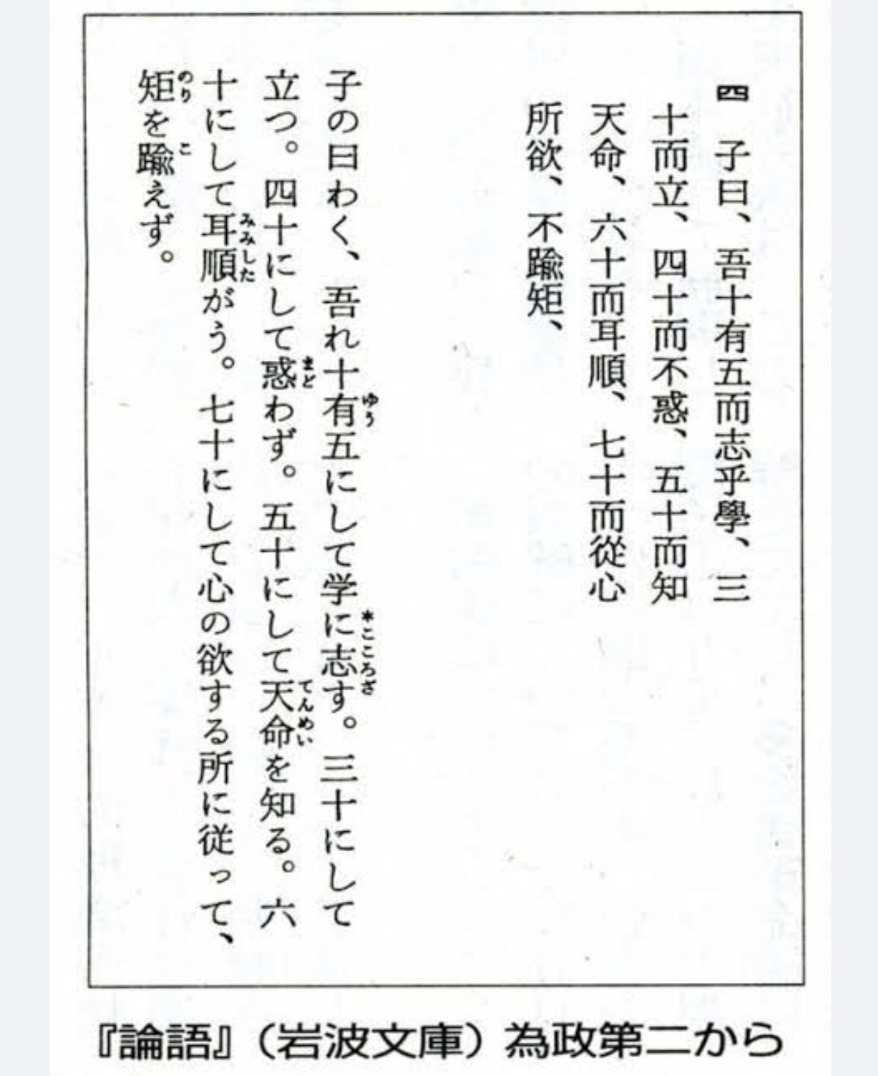 四 子曰、吾十有五而志乎學、三
十而立、四十而不惑、五十而知
天命、六十而耳順、七十而從心
所欲、不踰矩、
子の曰わく、吾れ十有五にして学に志す。三十にして
立つ。四十にして惑わず。五十にして天命を知る。六
十にして耳順がう。七十にして心の欲する所に従って、
矩を踰えず。
ゆう
*こころざ
まど
てんめい
みみした
のり
こ
『論語』（岩波文庫）為政第二から